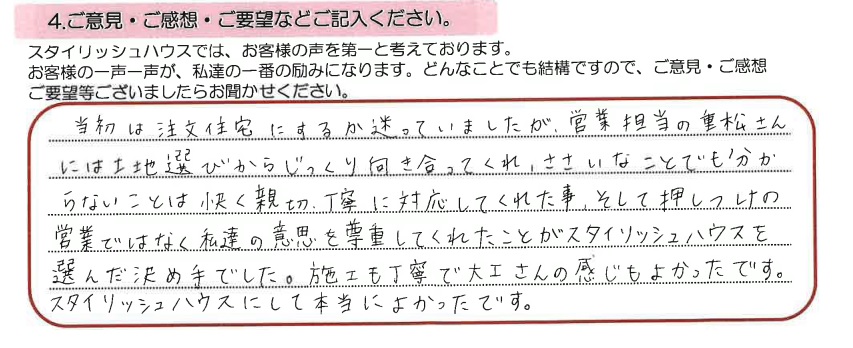 4.ご意見・ご感想・ご要望などご記入ください。
スタイリッシュハウスでは、お客様の声を第一と考えております。
お客様の一声一声が、私達の一番の励みになります。どんなことでも結構ですので、ご意見・ご感想
ご要望等ございましたらお聞かせください。
当初は注文住宅にするか迷っていましたが、営業担当の重松さん
には土地選びからじっくり向き合ってくれ、ささいなことでも分か
らないことは快く親切、丁寧に対応してくれた事、そして押しつけの
営業ではなく私達の意思を尊重してくれたことがスタイリッシュハウスを
選んだ決め手でした。施工も丁寧で大工さんの感じもよかったです。
スタイリッシュハウスにして本当によかったです。